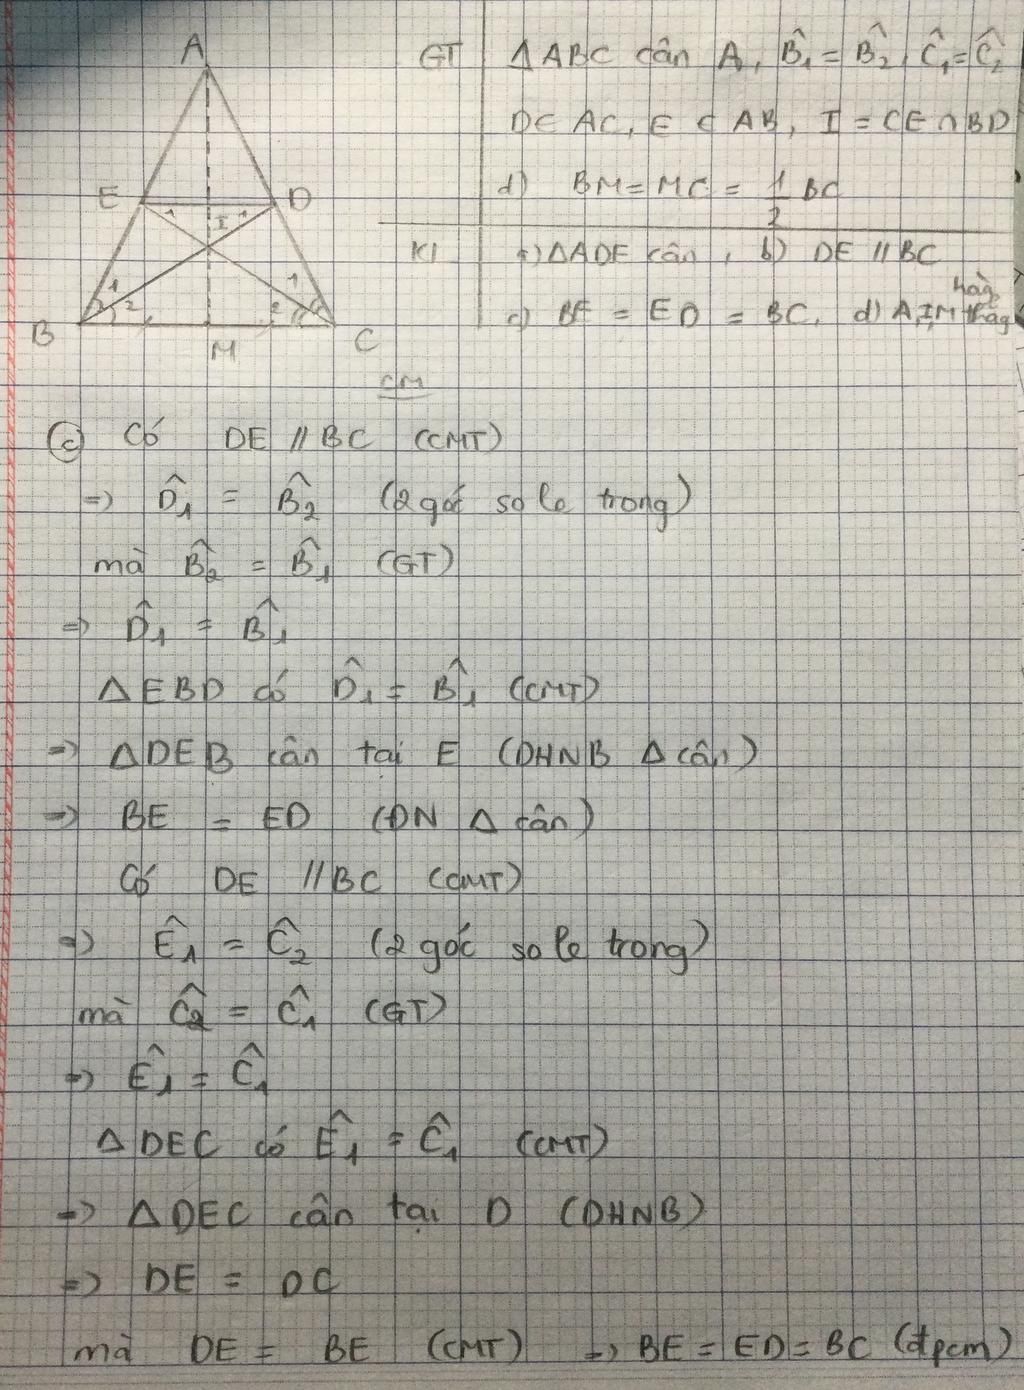 A
E D
1 I 1
1 2 1 2
B M C
GT ΔABC cân A, B̂₁ = B̂₂, Ĉ₁ = Ĉ₂
D ∈ AC, E ∈ AB, I = CE ∩ BD
d) BM = MC = 1/2 BC
Kl a) ΔADE cân, b) DE // BC
c) BE = ED = BC, d) A,I,M thẳng hàng
CM
c) Có DE // BC (CMT)
=> D̂₁ = B̂₂ (2 góc so le trong)
mà B̂₂ = B̂₁ (GT)
=> D̂₁ = B̂₁
ΔEBD có D̂₁ = B̂₁ (CMT)
=> ΔDEB cân tại E (DHNB Δ cân)
=> BE = ED (ĐN Δ cân)
Có DE // BC (CMT)
=> Ê₁ = Ĉ₂ (2 góc so le trong)
mà Ĉ₂ = Ĉ₁ (GT)
=> Ê₁ = Ĉ₁
ΔDEC có Ê₁ = Ĉ₁ (CMT)
=> ΔDEC cân tại D (DHNB)
=> DE = DC
mà DE = BE (CMT) => BE = ED = BC (đpcm)